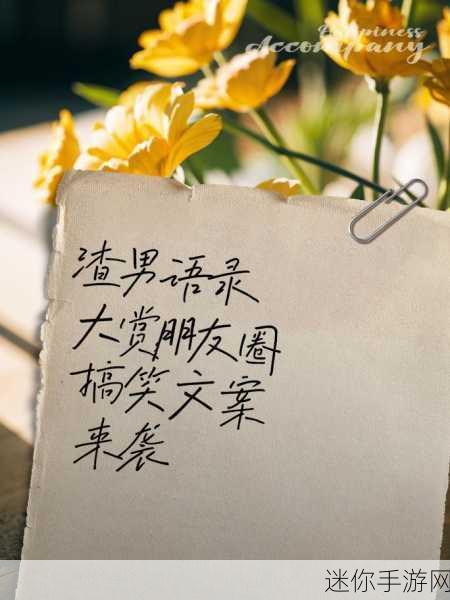 Happiness
Accompany
渣男语录
大赏,朋友圈
搞笑文案
来袭
迷你手游网